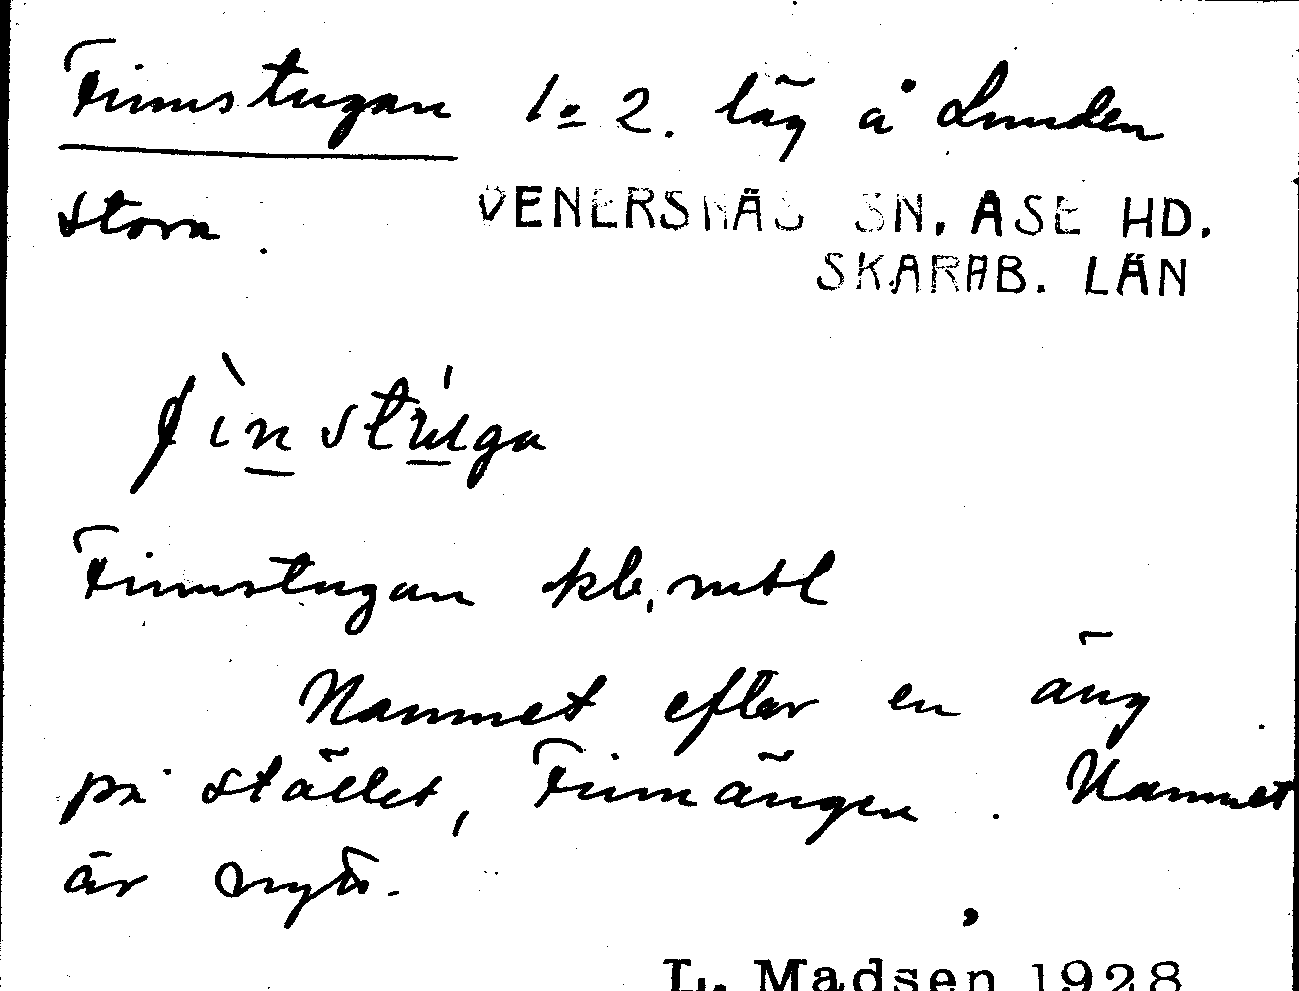 Finnstugan 1 o 2. läg å Lunden
Stora.
VENERSNÄS SN. ASE HD.
SKARAB. LÄN
Finnstugan kb, mtl
Namnet efter en äng
på stället, Finnängen. Namnet
är nytt.
L. Madsen 1928